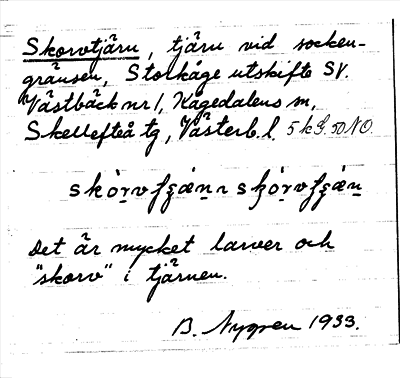 Skorvtjärn, tjärn vid socken-
gränsen, Stolkåge utskifte SV.
Västbäck nr 1, Kågedalens sn,
Skellefteå tg, Västerb. l. 5kS. 50NO.
Det är mycket larver och
"skorv" i tjärnen.
B. Nygren 1933.